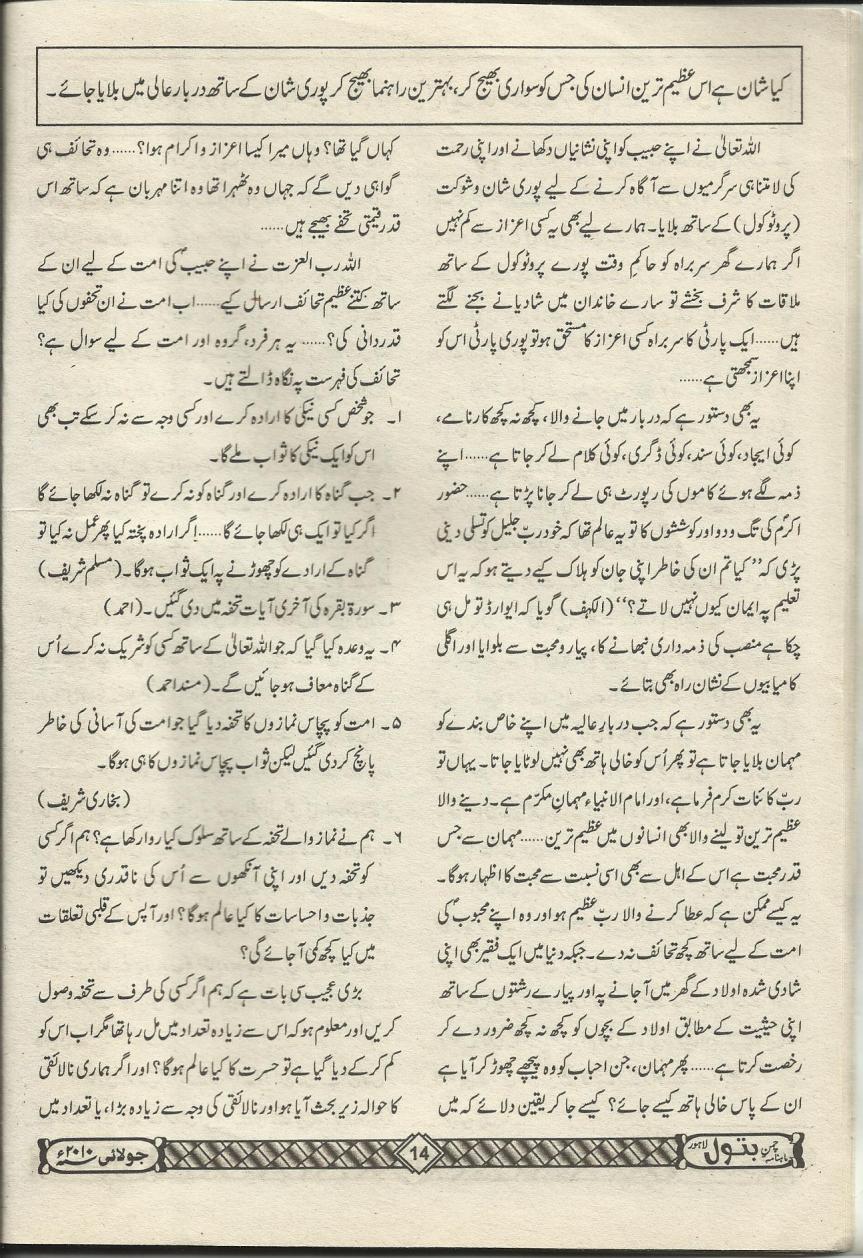 کیا شان ہے اس عظیم ترین انسان کی جس کو سواری بھیج کر، بہترین راہنما بھیج کر پوری شان کے ساتھ دربار عالی میں بلایا جائے۔
اللہ تعالیٰ نے اپنے حبیب کو اپنی نشانیاں دکھانے اور اپنی رحمت
کی لامتناہی سرگرمیوں سے آگاہ کرنے کے لیے پوری شان و شوکت
(پروٹوکول) کے ساتھ بلایا۔ ہمارے لیے بھی یہ کسی اعزاز سے کم نہیں
اگر ہمارے گھر سربراہ کو حاکمِ وقت پورے پروٹوکول کے ساتھ
ملاقات کا شرف بخشے تو سارے خاندان میں شادیانے بجنے لگتے
ہیں……ایک پارٹی کا سربراہ کسی اعزاز کا مستحق ہو تو پوری پارٹی اس کو
اپنا اعزاز سمجھتی ہے……
یہ بھی دستور ہے کہ دربار میں جانے والا، کچھ نہ کچھ کارنامے،
کوئی ایجاد، کوئی سند، کوئی ڈگری، کوئی کلام لے کر جاتا ہے……اپنے
ذمہ لگے ہوئے کاموں کی رپورٹ ہی لے کر جانا پڑتا ہے……حضور
اکرمؐ کی تگ و دو اور کوششوں کا تو یہ عالم تھا کہ خود ربّ جلیل کو تسلی دینی
پڑی کہ ’’کیا تم ان کی خاطر اپنی جان کو ہلاک کیے دیتے ہو کہ یہ اس
تعلیم پہ ایمان کیوں نہیں لاتے؟‘‘ (الکہف) گویا کہ ایوارڈ تو مل ہی
چکا ہے منصب کی ذمہ داری نبھانے کا، پیار و محبت سے بلوایا اور اگلی
کامیابیوں کے نشان راہ بھی بتائے۔
یہ بھی دستور ہے کہ جب دربارِ عالیہ میں اپنے خاص بندے کو
مہمان بلایا جاتا ہے تو پھر اُس کو خالی ہاتھ بھی نہیں لوٹایا جاتا۔ یہاں تو
ربّ کائنات کرم فرما ہے، اور امام الانبیاء مہمانِ مکرّم ہے۔ دینے والا
عظیم ترین تو لینے والا بھی انسانوں میں عظیم ترین……مہمان سے جس
قدر محبت ہے اس کے اہل سے بھی اسی نسبت سے محبت کا اظہار ہوگا۔
یہ کیسے ممکن ہے کہ عطا کرنے والا ربّ عظیم ہو اور وہ اپنے محبوبؐ کی
امت کے لیے ساتھ کچھ تحائف نہ دے۔ جبکہ دنیا میں ایک فقیر بھی اپنی
شادی شدہ اولاد کے گھر میں آ جانے پہ اور پیارے رشتوں کے ساتھ
اپنی حیثیت کے مطابق اولاد کے بچوں کو کچھ نہ کچھ ضرور دے کر
رخصت کرتا ہے……پھر مہمان، جن احباب کو وہ پیچھے چھوڑ کر آیا ہے
ان کے پاس خالی ہاتھ کیسے جائے؟ کیسے جا کر یقین دلائے کہ میں
کہاں گیا تھا؟ وہاں میرا کیسا اعزاز و اکرام ہوا؟……وہ تحائف ہی
گواہی دیں گے کہ جہاں وہ ٹھہرا تھا وہ اتنا مہربان ہے کہ ساتھ اس
قدر قیمتی تحفے بھیجے ہیں……
اللہ رب العزت نے اپنے حبیبؐ کی امت کے لیے ان کے
ساتھ کتنے عظیم تحائف ارسال کیے……اب امت نے ان تحفوں کی کیا
قدر دانی کی؟……یہ ہر فرد، گروہ اور امت کے لیے سوال ہے؟
تحائف کی فہرست پہ نگاہ ڈالتے ہیں۔
۱۔ جو شخص کسی نیکی کا ارادہ کرے اور کسی وجہ سے نہ کر سکے تب بھی
اس کو ایک نیکی کا ثواب ملے گا۔
۲۔ جب گناہ کا ارادہ کرے اور گناہ کو نہ کرے تو گناہ نہ لکھا جائے گا
اگر کیا تو ایک ہی لکھا جائے گا……اگر ارادہ پختہ کیا پھر عمل نہ کیا تو
گناہ کے ارادے کو چھوڑنے پہ ایک ثواب ہوگا۔ (مسلم شریف)
۳۔ سورۃ بقرہ کی آخری آیات تحفہ میں دی گئیں۔ (احمد)
۴۔ یہ وعدہ کیا گیا کہ جو اللہ تعالیٰ کے ساتھ کسی کو شریک نہ کرے اُس
کے گناہ معاف ہو جائیں گے۔ (مسند احمد)
۵۔ امت کو پچاس نمازوں کا تحفہ دیا گیا جو امت کی آسانی کی خاطر
پانچ کر دی گئیں لیکن ثواب پچاس نمازوں کا ہی ہوگا۔
(بخاری شریف)
۶۔ ہم نے نماز والے تحفہ کے ساتھ سلوک کیا روا رکھا ہے؟ ہم اگر کسی
کو تحفہ دیں اور اپنی آنکھوں سے اُس کی ناقدری دیکھیں تو
جذبات و احساسات کا کیا عالم ہوگا؟ اور آپس کے قلبی تعلقات
میں کیا کچھ کمی آ جائے گی؟
بڑی عجیب سی بات ہے کہ ہم اگر کسی کی طرف سے تحفہ وصول
کریں اور معلوم ہو کہ اس سے زیادہ تعداد میں مل رہا تھا مگر اب اس کو
کم کر کے دیا گیا ہے تو حسرت کا کیا عالم ہوگا؟ اور اگر ہماری نالائقی
کا حوالہ زیر بحث آیا ہو اور نالائقی کی وجہ سے زیادہ بڑا، یا تعداد میں
ماہنامہ چمنِ بتول لاہور
14
جولائی ۲۰۱۰ء